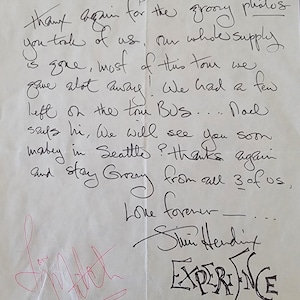 thanx again for the groovy photos
you took of us. our whole supply
is gone, most of this tour we
gave alot away! We had a few
left on the tour BUS.... Noel
says hi, We will see you soon
maby in Seattle? thanks again
and stay Groovy from all 3 of us,
Love forever — . . .
Hendrix
EXPERIENCE